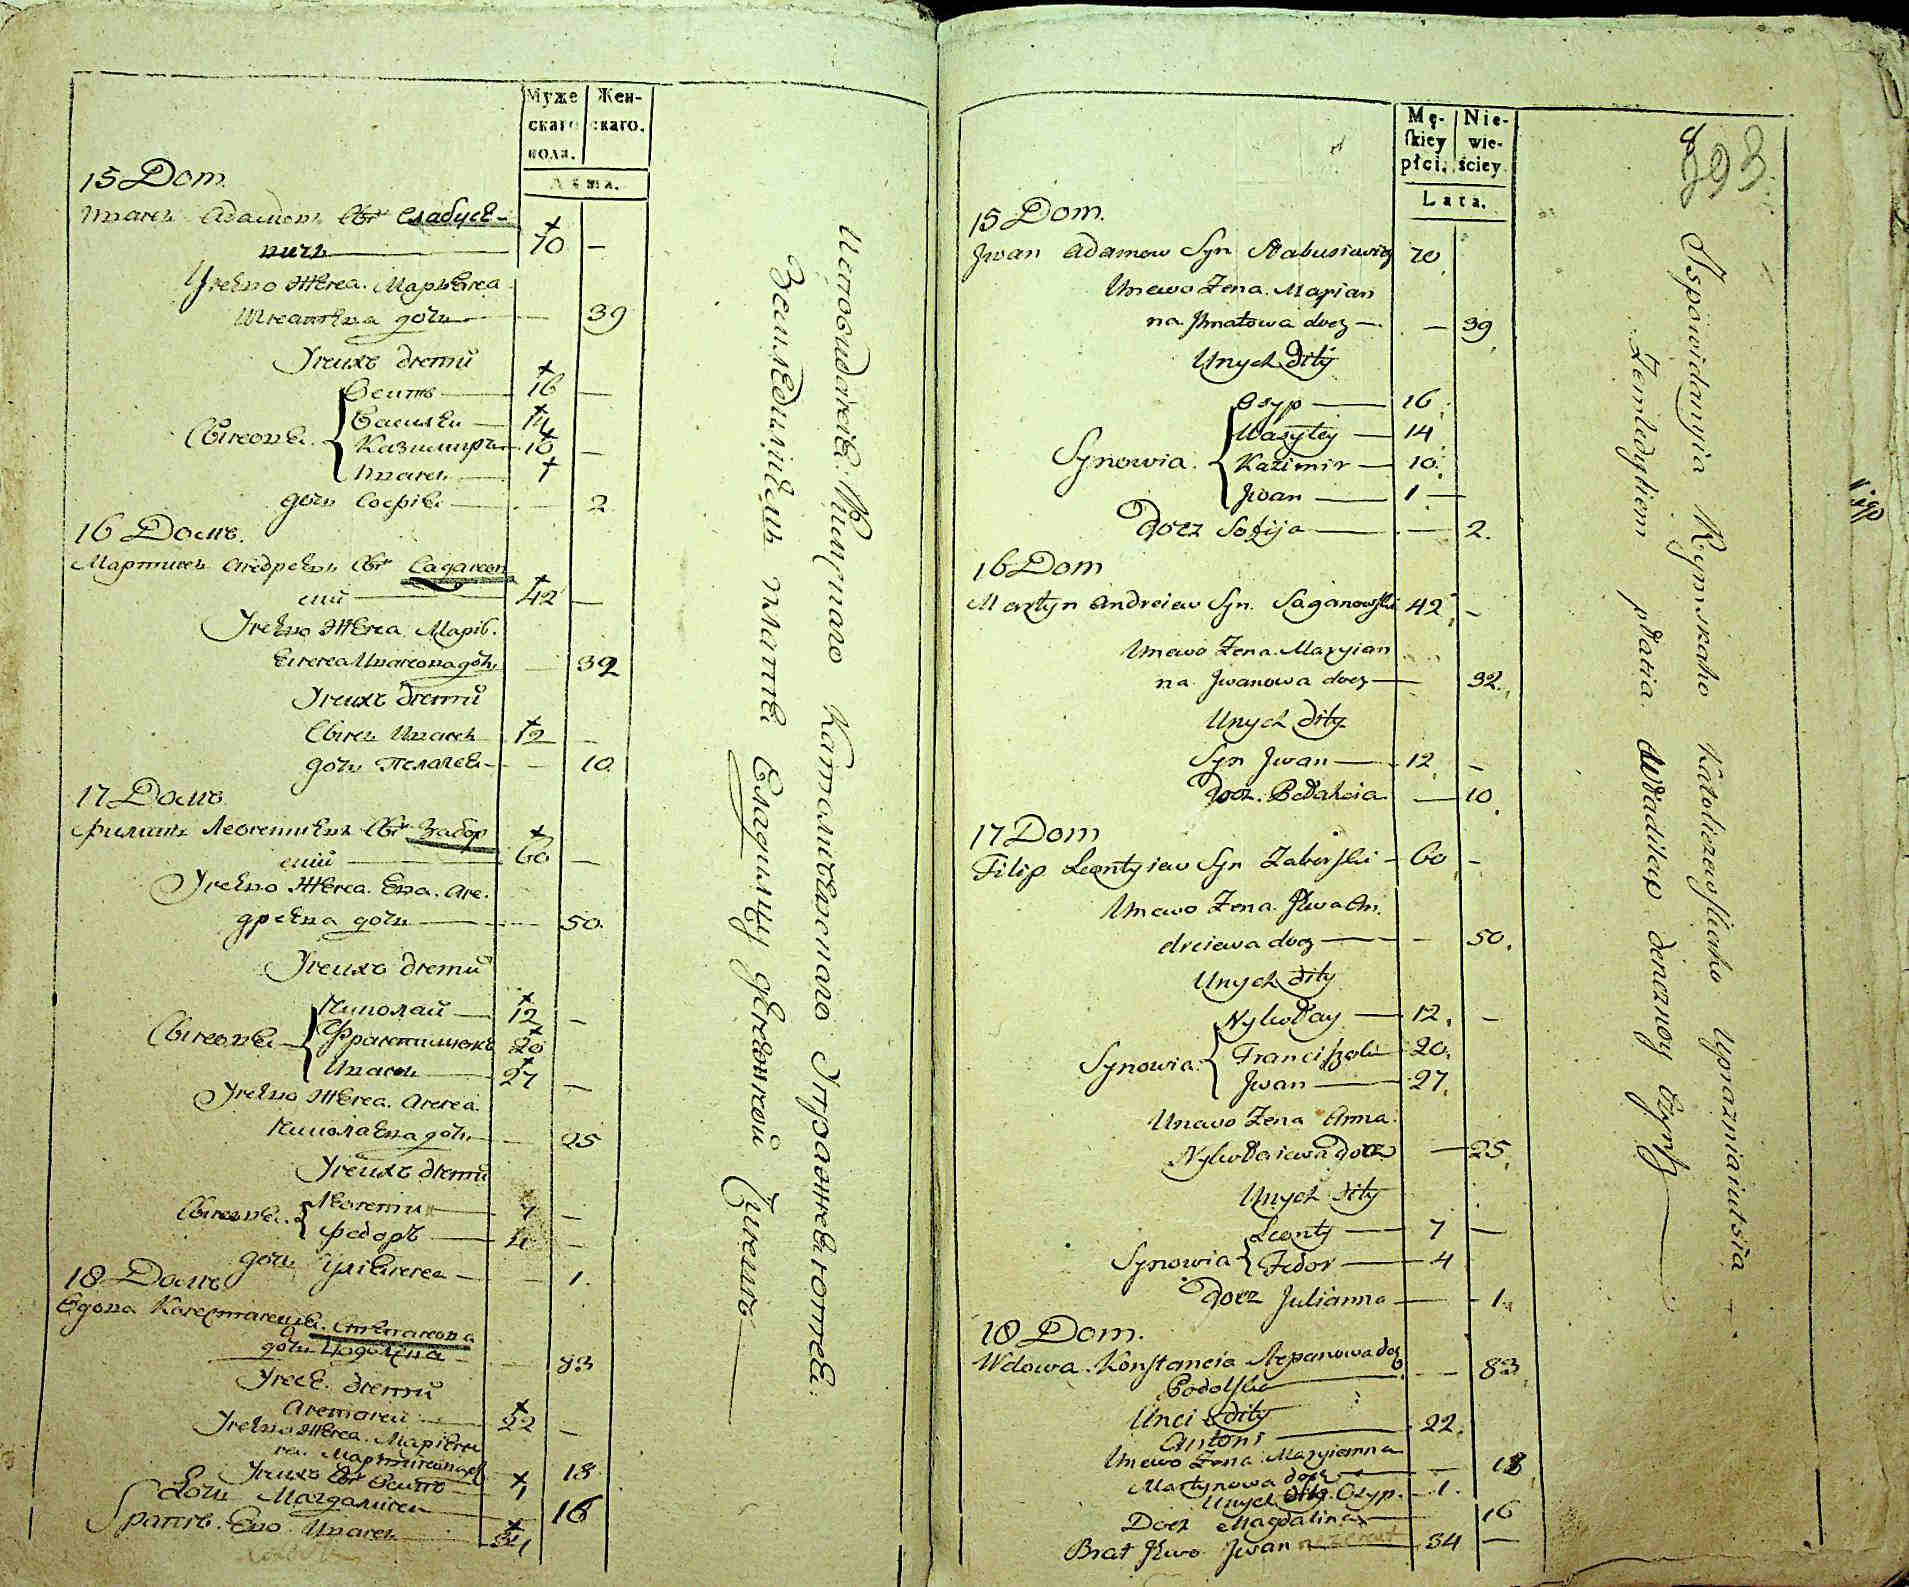 Муже
скаго
пола.
Жен-
скаго.
Лѣта.
15 Dom.
Иванъ Адамовъ Сынъ Слабусе-
вичъ — 70 —
Унего Жена. Марьяна
Игнатова дочь — 39
Унихъ дѣти
Сынове.
Осипъ — 16 —
Василей — 14
Казимиръ — 10 —
Иванъ — 1
дочь Софія — 2
16 Домъ.
Мартинъ Андреевъ Сынъ Сагановс
кій — 42 —
Унего Жена Марія.
Иванова дочь — 32
Унихъ дѣти
Сынъ Иванъ — 12 —
дочь Пелагея — 10.
17 Домъ
Филипъ Леонтиевъ Сынъ Забор
скій — 60 —
Унего Жена. Ева. Ан.
дреева дочь — 50.
Унихъ дѣти
Сынове
Николай — 12 —
Францишекъ 20
Иванъ — 27 —
Унего Жена. Анна.
Николаева дочь — 25
Унихъ дѣти
Сынове.
Леонти — 7 —
Федоръ — 4 —
дочь Уліянна — 1.
18 Домъ
Вдова Констанция. Степанова
дочь Подолска — 83
Унее. дѣти
Антони — 22 —
Унего Жена. Маріянна
Мартинова дочь 18
Унихъ Сынъ Осипъ — 1
Дочь Магдалина — 16
Братъ. Его Иванъ — 34
Исповиданія Римскаго Католическаго Упражняются
Земледиліемъ платя Владилцу денежной Чиншъ —
Mę-
skiey
płci.
Nie-
wie-
ściey.
Lata.
893.
15 Dom.
Jwan Adamow Syn Słabusiewicz 70
Unewo Żena. Marian
na Jhnatowa docz — 39
Unych dity
Synowia.
Osyp — 16
Wasyley — 14
Kazimir — 10
Jwan — 1 —
Docz Sofija — 2.
16 Dom
Martyn Andreiew Syn. Saganowski 42 —
Unewo Żena. Maryian
na Jwanowa docz — 32.
Unych dity
Syn Jwan — 12 —
Docz. Pełahia — 10
17 Dom
Filip Leontyiew Syn Zaborski — 60 —
Unewo Żena. Jewa An.
dreiewa docz — 50.
Unych dity
Synowia.
Nykołay — 12 —
Franciszek — 20.
Jwan — 27.
Unawo Żena Anna.
Nykołaiewa Docz — 25.
Unych dity
Synowia
Leonty — 7 —
Fedor — 4
Docz Julianna — 1.
18 Dom.
Wdowa. Konstancia Stepanowa docz
Podolska — 83
Unei dity
Antoni — 22.
Unewo Żena Maryianna
Martynowa docz — 18
Unych dity. Osyp. — 1.
Docz Magdalina — 16
Brat Jewo Jwan — 34 —
Jspowidanyia Rymskaho Katoliczewskaho Uprazniaiutsia
Zemledyliem płatia Władilcu deneznoy Czynsz —